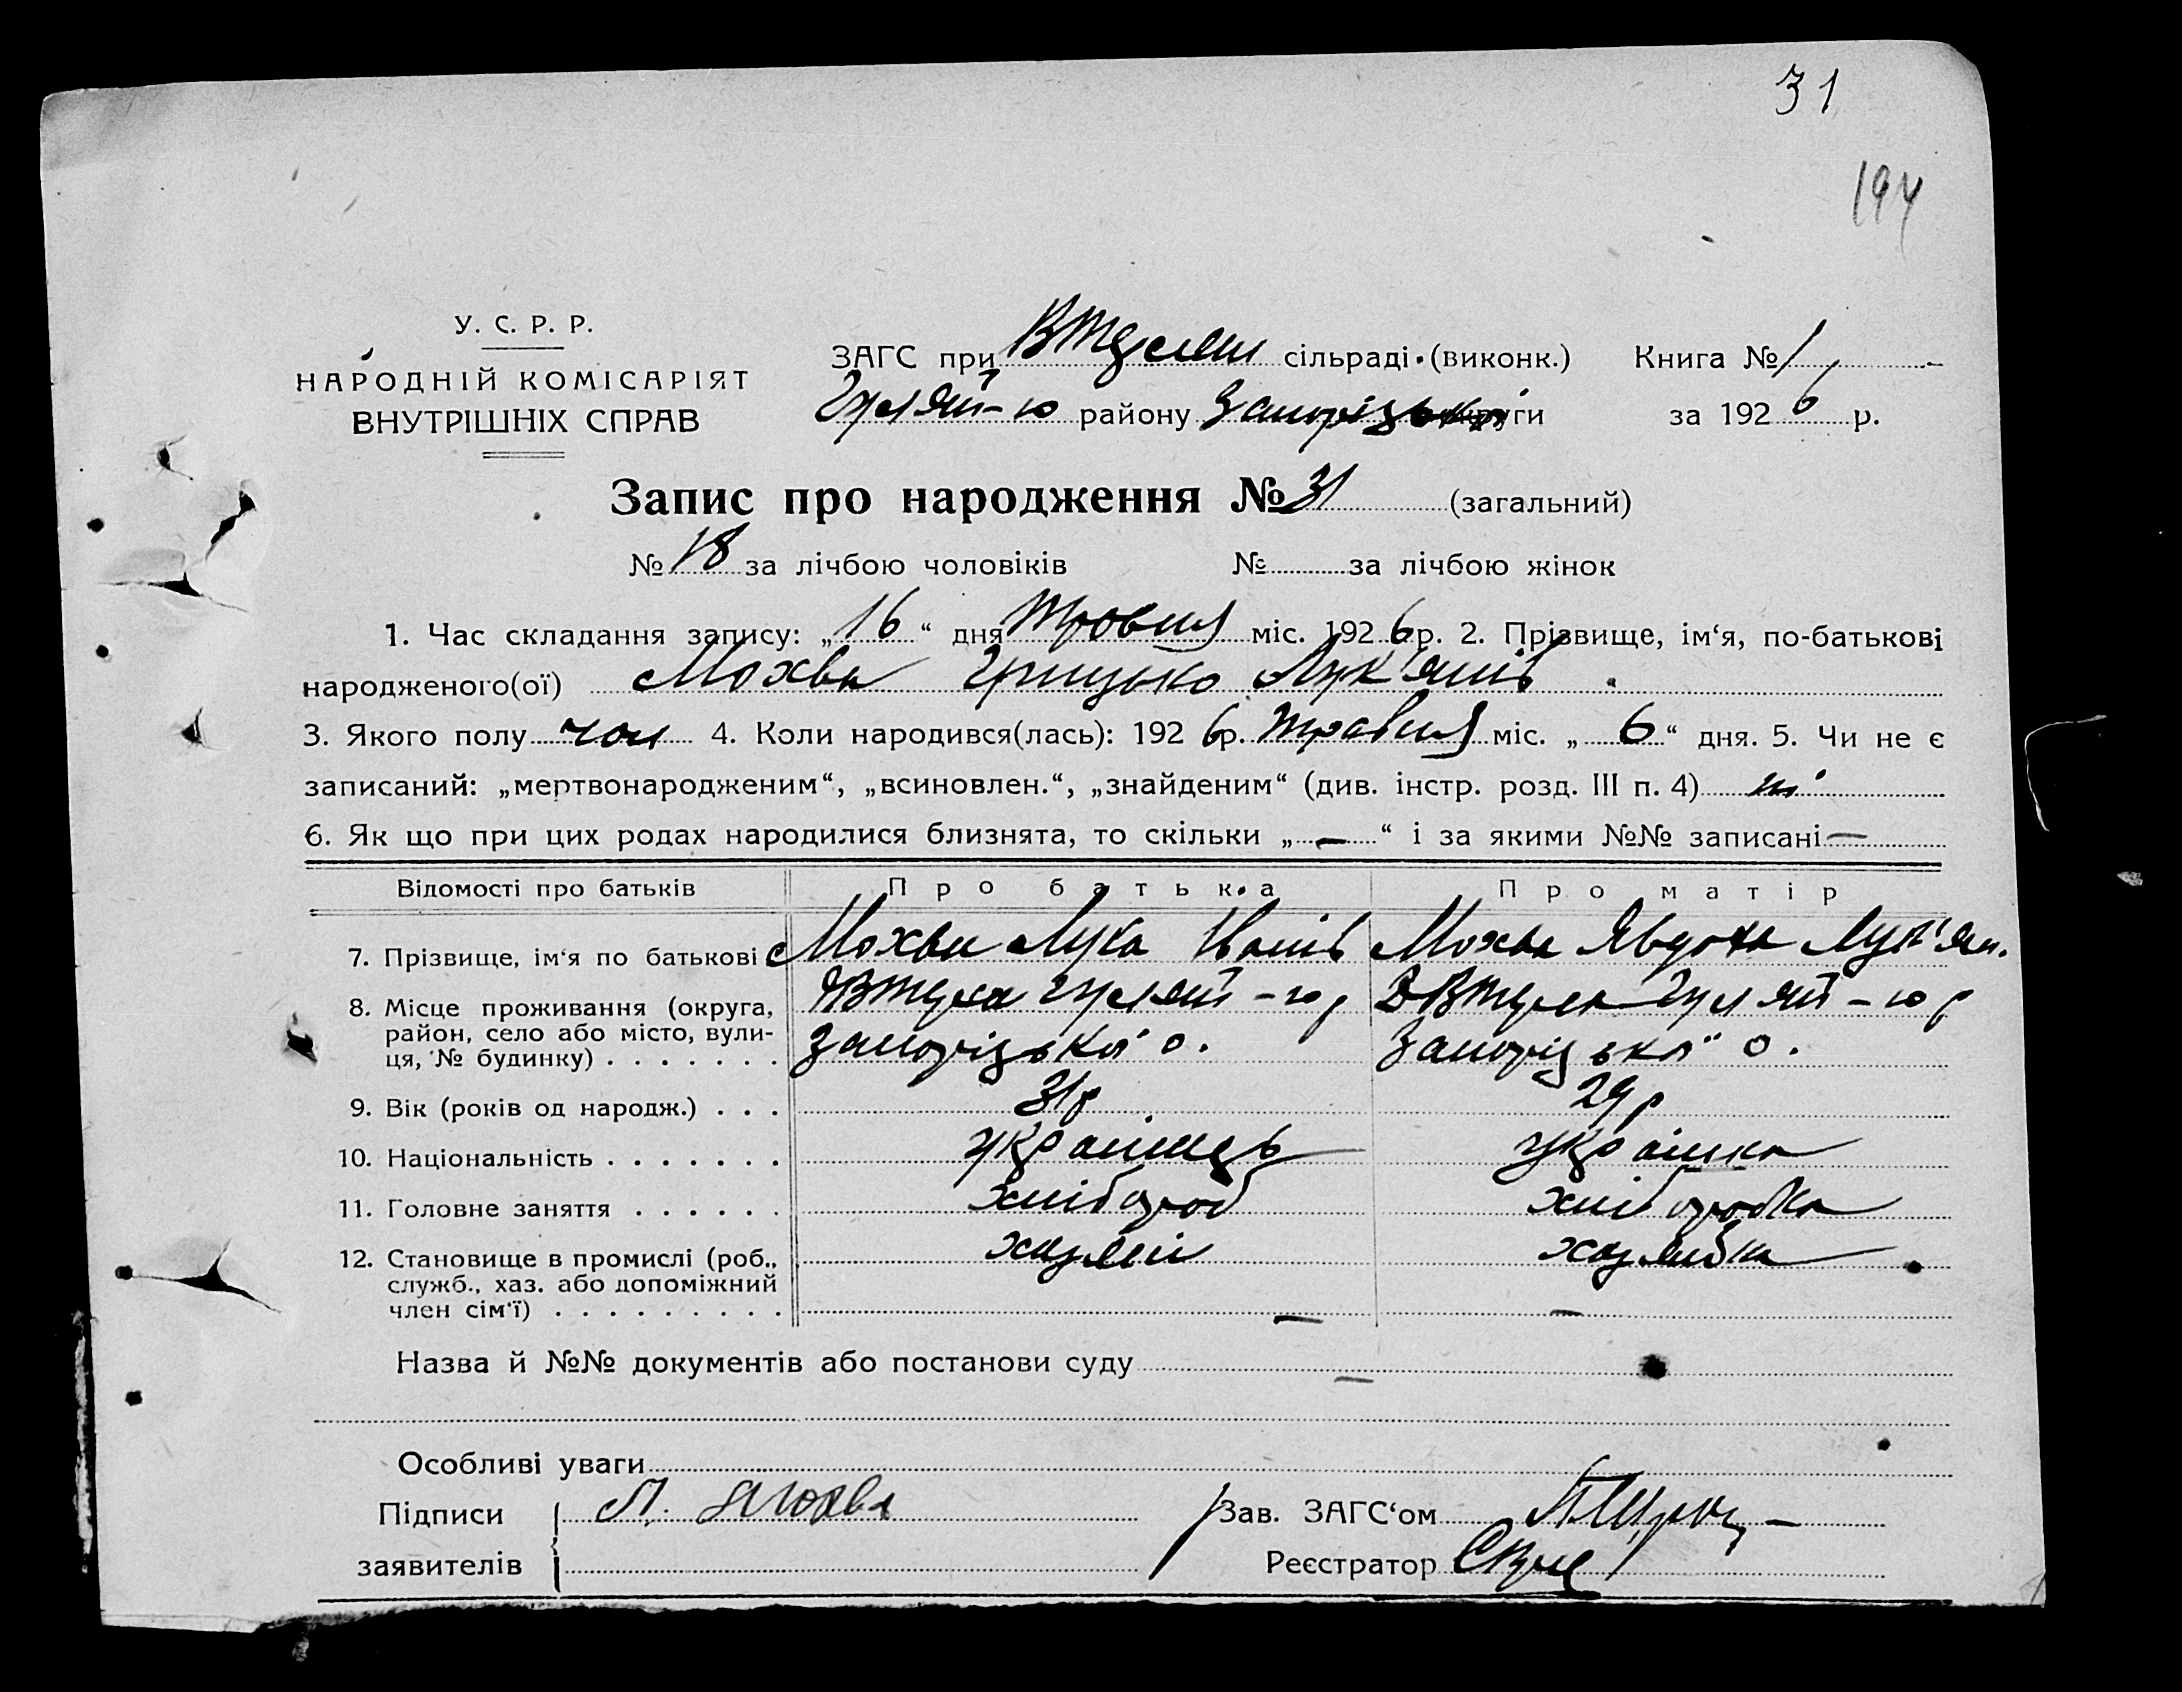 31
194
У. С. Р. Р.
НАРОДНІЙ КОМІСАРІЯТ
ВНУТРІШНІХ СПРАВ
ЗАГС при сільраді (виконк.) Книга № 1
Гуляй-ю району Запорізької округи за 1926 р.
Запис про народження № 31 (загальний)
№ 18 за лічбою чоловіків № за лічбою жінок
1. Час складання запису: „16“ дня травня міс. 1926 р. 2. Прізвище, ім‘я, по-батькові
народженого(ої) Мохва Грицько Лук'янів
3. Якого полу чол 4. Коли народився(лась): 1926 р. травня міс. „6“ дня. 5. Чи не є
записаний: „мертвонародженим“, „всиновлен.“, „знайденим“ (див. інстр. розд. III п. 4) ні
6. Як що при цих родах народилися близнята, то скільки „—“ і за якими №№ записані —
Відомості про батьків Про батька Про матір
7. Прізвище, ім‘я по батькові Мохва Лука Іванів Мохва Явдоха Лук'ян.
8. Місце проживання (округа, Гуляй-ю р Гуляй-ю р
район, село або місто, вули- Запорізької о. Запорізької о.
ця, № будинку) . . . . . . .
9. Вік (років од народж.) . . . 31 р 29 р
10. Національність . . . . . . . українець українка
11. Головне заняття . . . . . . хлібороб хліборобка
12. Становище в промислі (роб., хазяїн хазяйка
служб., хаз. або допоміжний
член сім‘ї) . . . . . . . . . — —
Назва й №№ документів або постанови суду —
Особливі уваги
Підписи Л. Мохва Зав. ЗАГС‘ом
заявителів Реєстратор